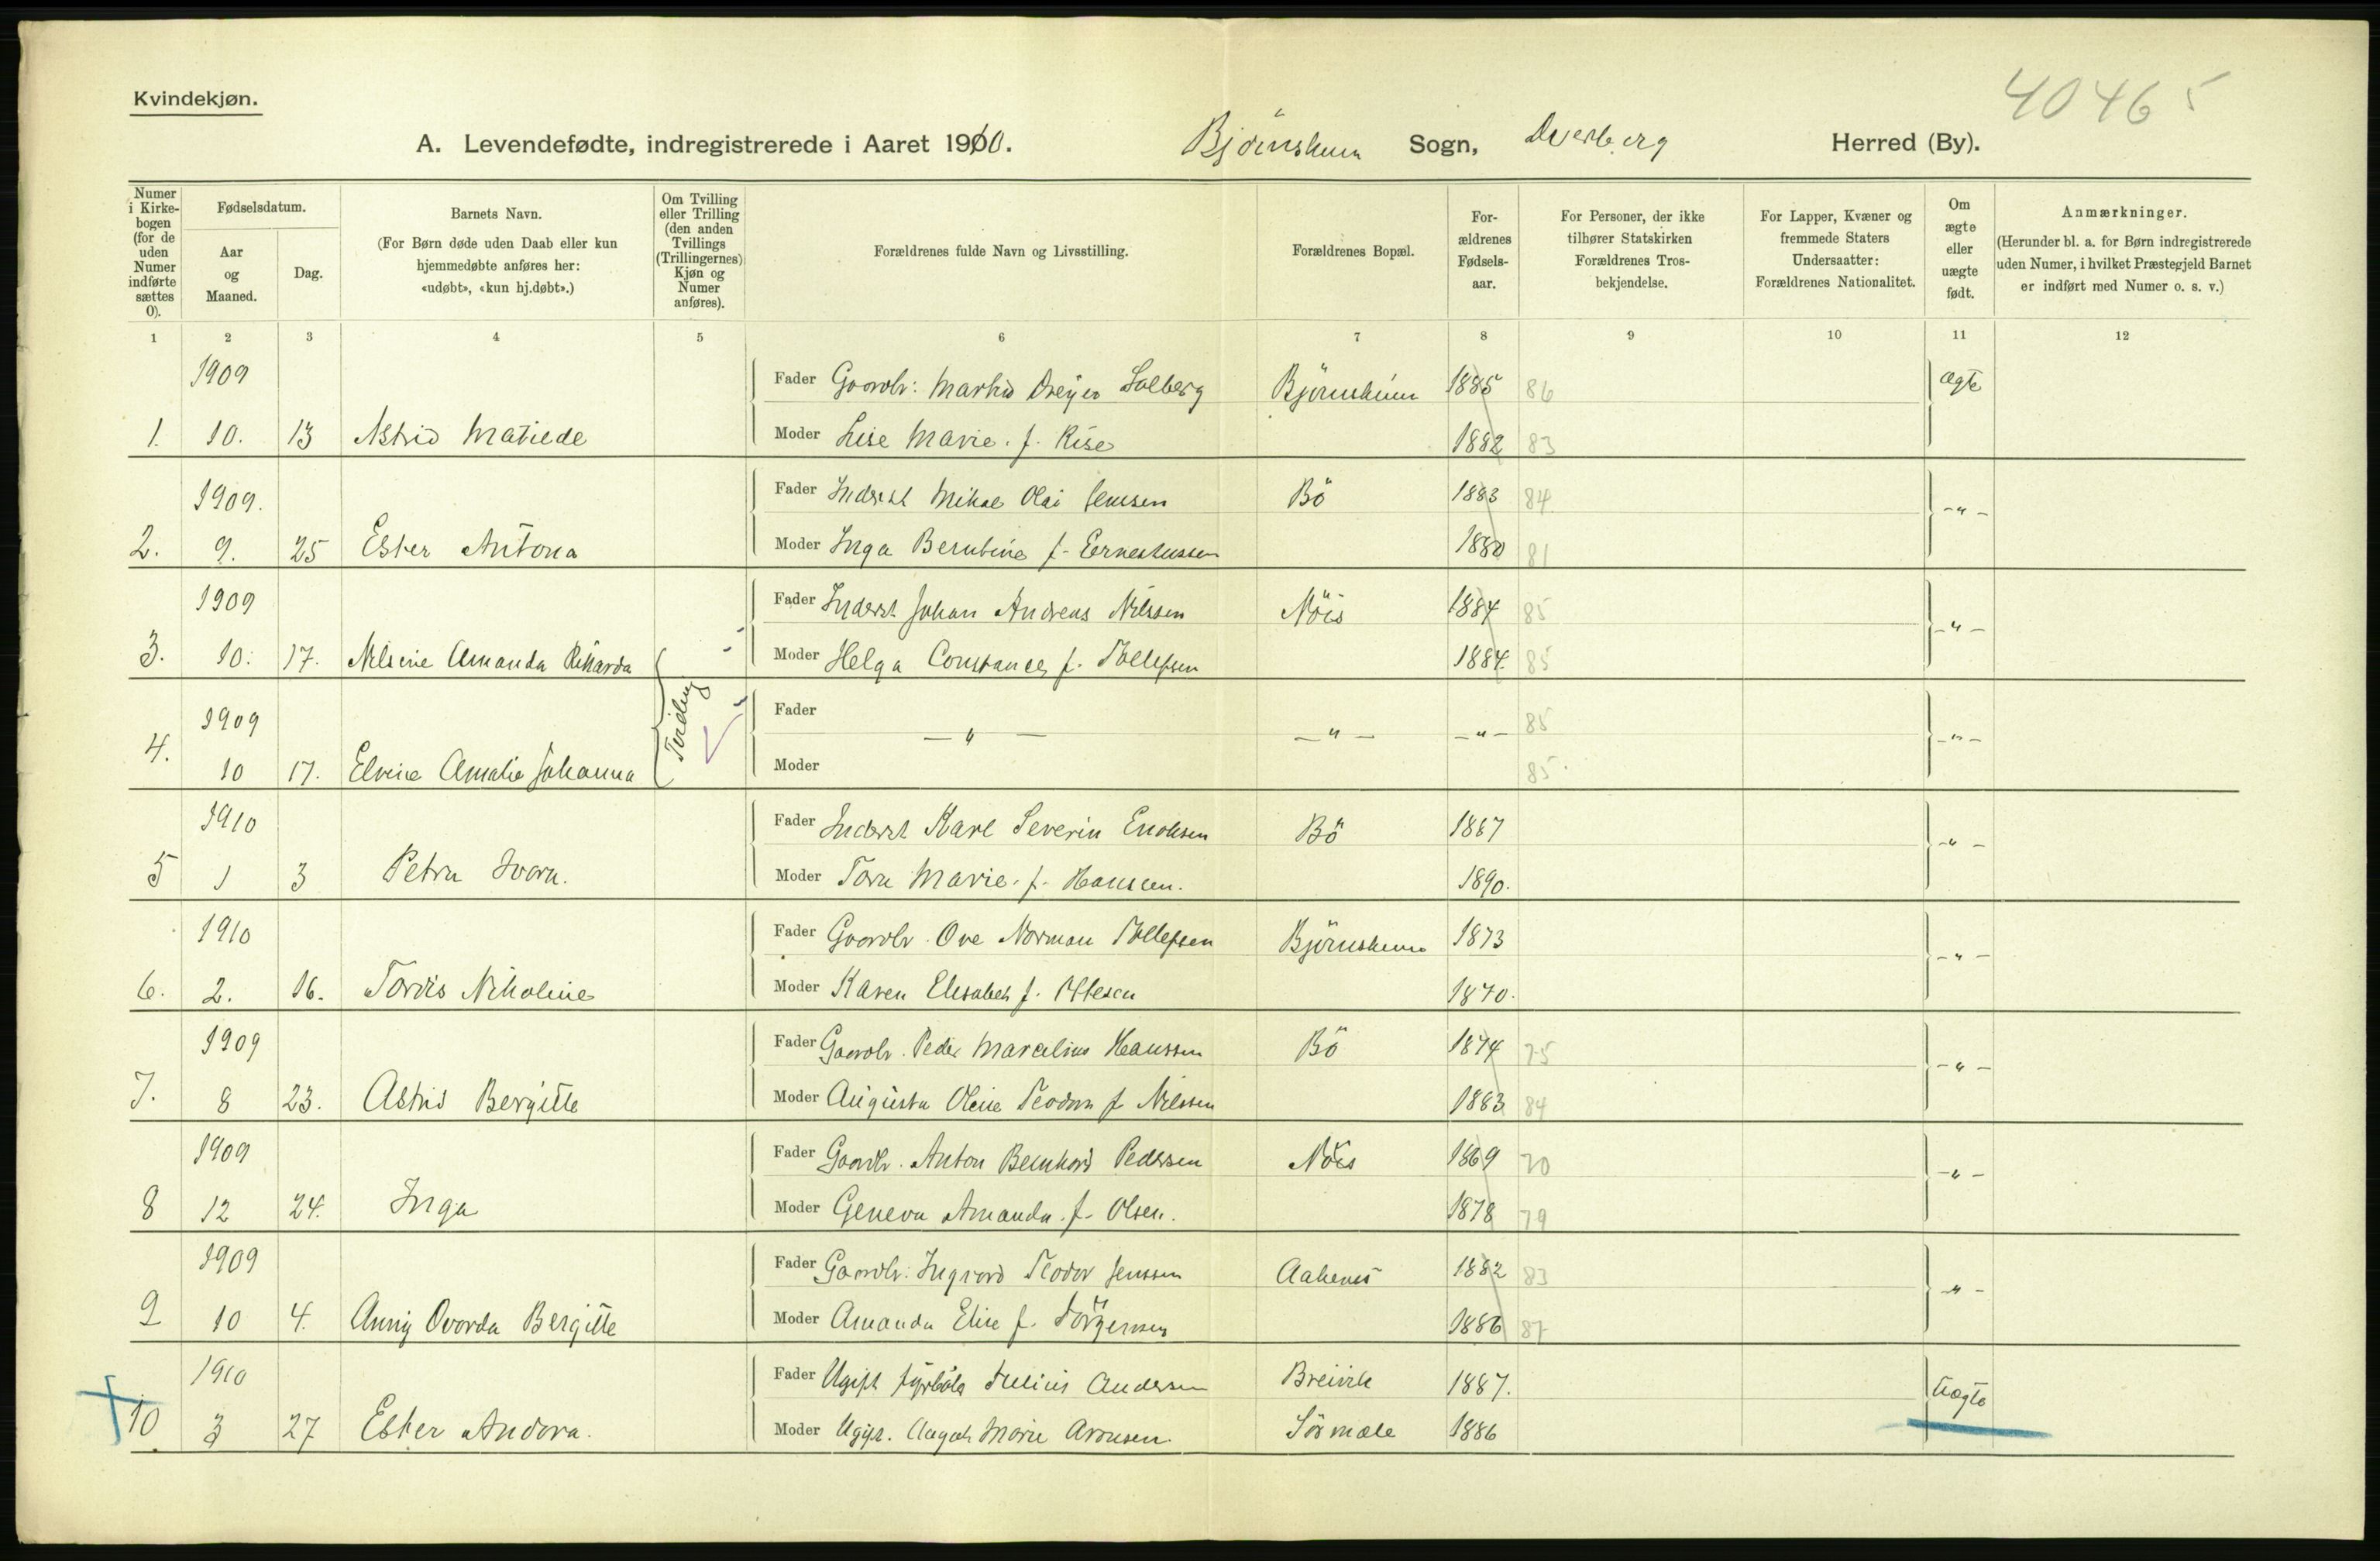 40465
Kvindekjøn.
A. Levendefødte, indregistrerede i Aaret 1910. Björnskinn Sogn, Dverberg Herred (By).
Numer i Kirkebogen (for de uden Numer indførte sættes 0).
Fødselsdatum.
Aar og Maaned.
Dag.
Barnets Navn.
(For Børn døde uden Daab eller kun hjemmedøbte anføres her: «udøbt», «kun hj.døbt».)
Om Tvilling eller Trilling (den anden Tvillings (Trillingernes) Kjøn og Numer anføres).
Forældrenes fulde Navn og Livsstilling.
Forældrenes Bopæl.
For-ældrenes Fødsels-aar.
For Personer, der ikke tilhører Statskirken Forældrenes Tros-bekjendelse.
For Lapper, Kvæner og fremmede Staters Undersaatter: Forældrenes Nationalitet.
Om ægte eller uægte født.
Anmærkninger.
(Herunder bl. a. for Børn indregistrerede uden Numer, i hvilket Præstegjeld Barnet er indført med Numer o. s. v.)
1 2 3 4 5 6 7 8 9 10 11 12
1909 Fader Gaardbr: Martin Dreyer Solberg Björnskinn 1885 86 Ægte
1. 10. 13 Astrid Matilde Moder Lise Marie. f. Rise 1882 83
1909. Fader Inderst Mikal Olai Jenssen Bö 1883 84 -"-
2. 9. 25 Ester Antona Moder Inga Berntine f. Ernestussen 1880 81
1909 Fader Inderst Johan Andreas Nilssen Nöis 1884 85 -"-
3. 10. 17. Nilsine Amanda Rikarda Moder Helga Constance f. Tollefsen 1884. 85
Tvilling
1909 Fader -"- -"- -"- 85 -"-
4. 10 17. Elvine Amalie Johanna Moder 85
1910 Fader Inderst Karl Severin Enoksen Bö 1887 -"-
5 1 3 Petra Ivara. Moder Tora Marie. f. Hanssen. 1890.
1910 Fader Gaardbr. Ove Norman Tollefsen Björnskinn 1873 -"-
6. 2. 16. Tordis Nikoline Moder Karen Elisabet f. Ottesen 1870.
1909 Fader Gaardbr. Peder Marcelius Hanssen Bö 1874 75 -"-
7. 8 23. Astrid Bergitte Moder Augusta Oline Teodora f Nilssen 1883 84
1909 Fader Gaardbr. Anton Bernhard Pedersen Nöis 1869 70 -"-
8 12 24. Inga Moder Geneva Amanda. f. Olsen. 1878 79
1909 Fader Gaardbr. Ingvard Teodor Jenssen Aaknes 1882 83 -"-
9 10 4. Anny Ovarda Bergitte Moder Amanda Elise f. Jörgensen 1886 87
1910 Fader Ugift fyrböter Julius Andersen Breivik 1887. Uægte
10 3 27 Ester Andora. Moder Ugift. Marie Aronsen. Sörmæle 1886